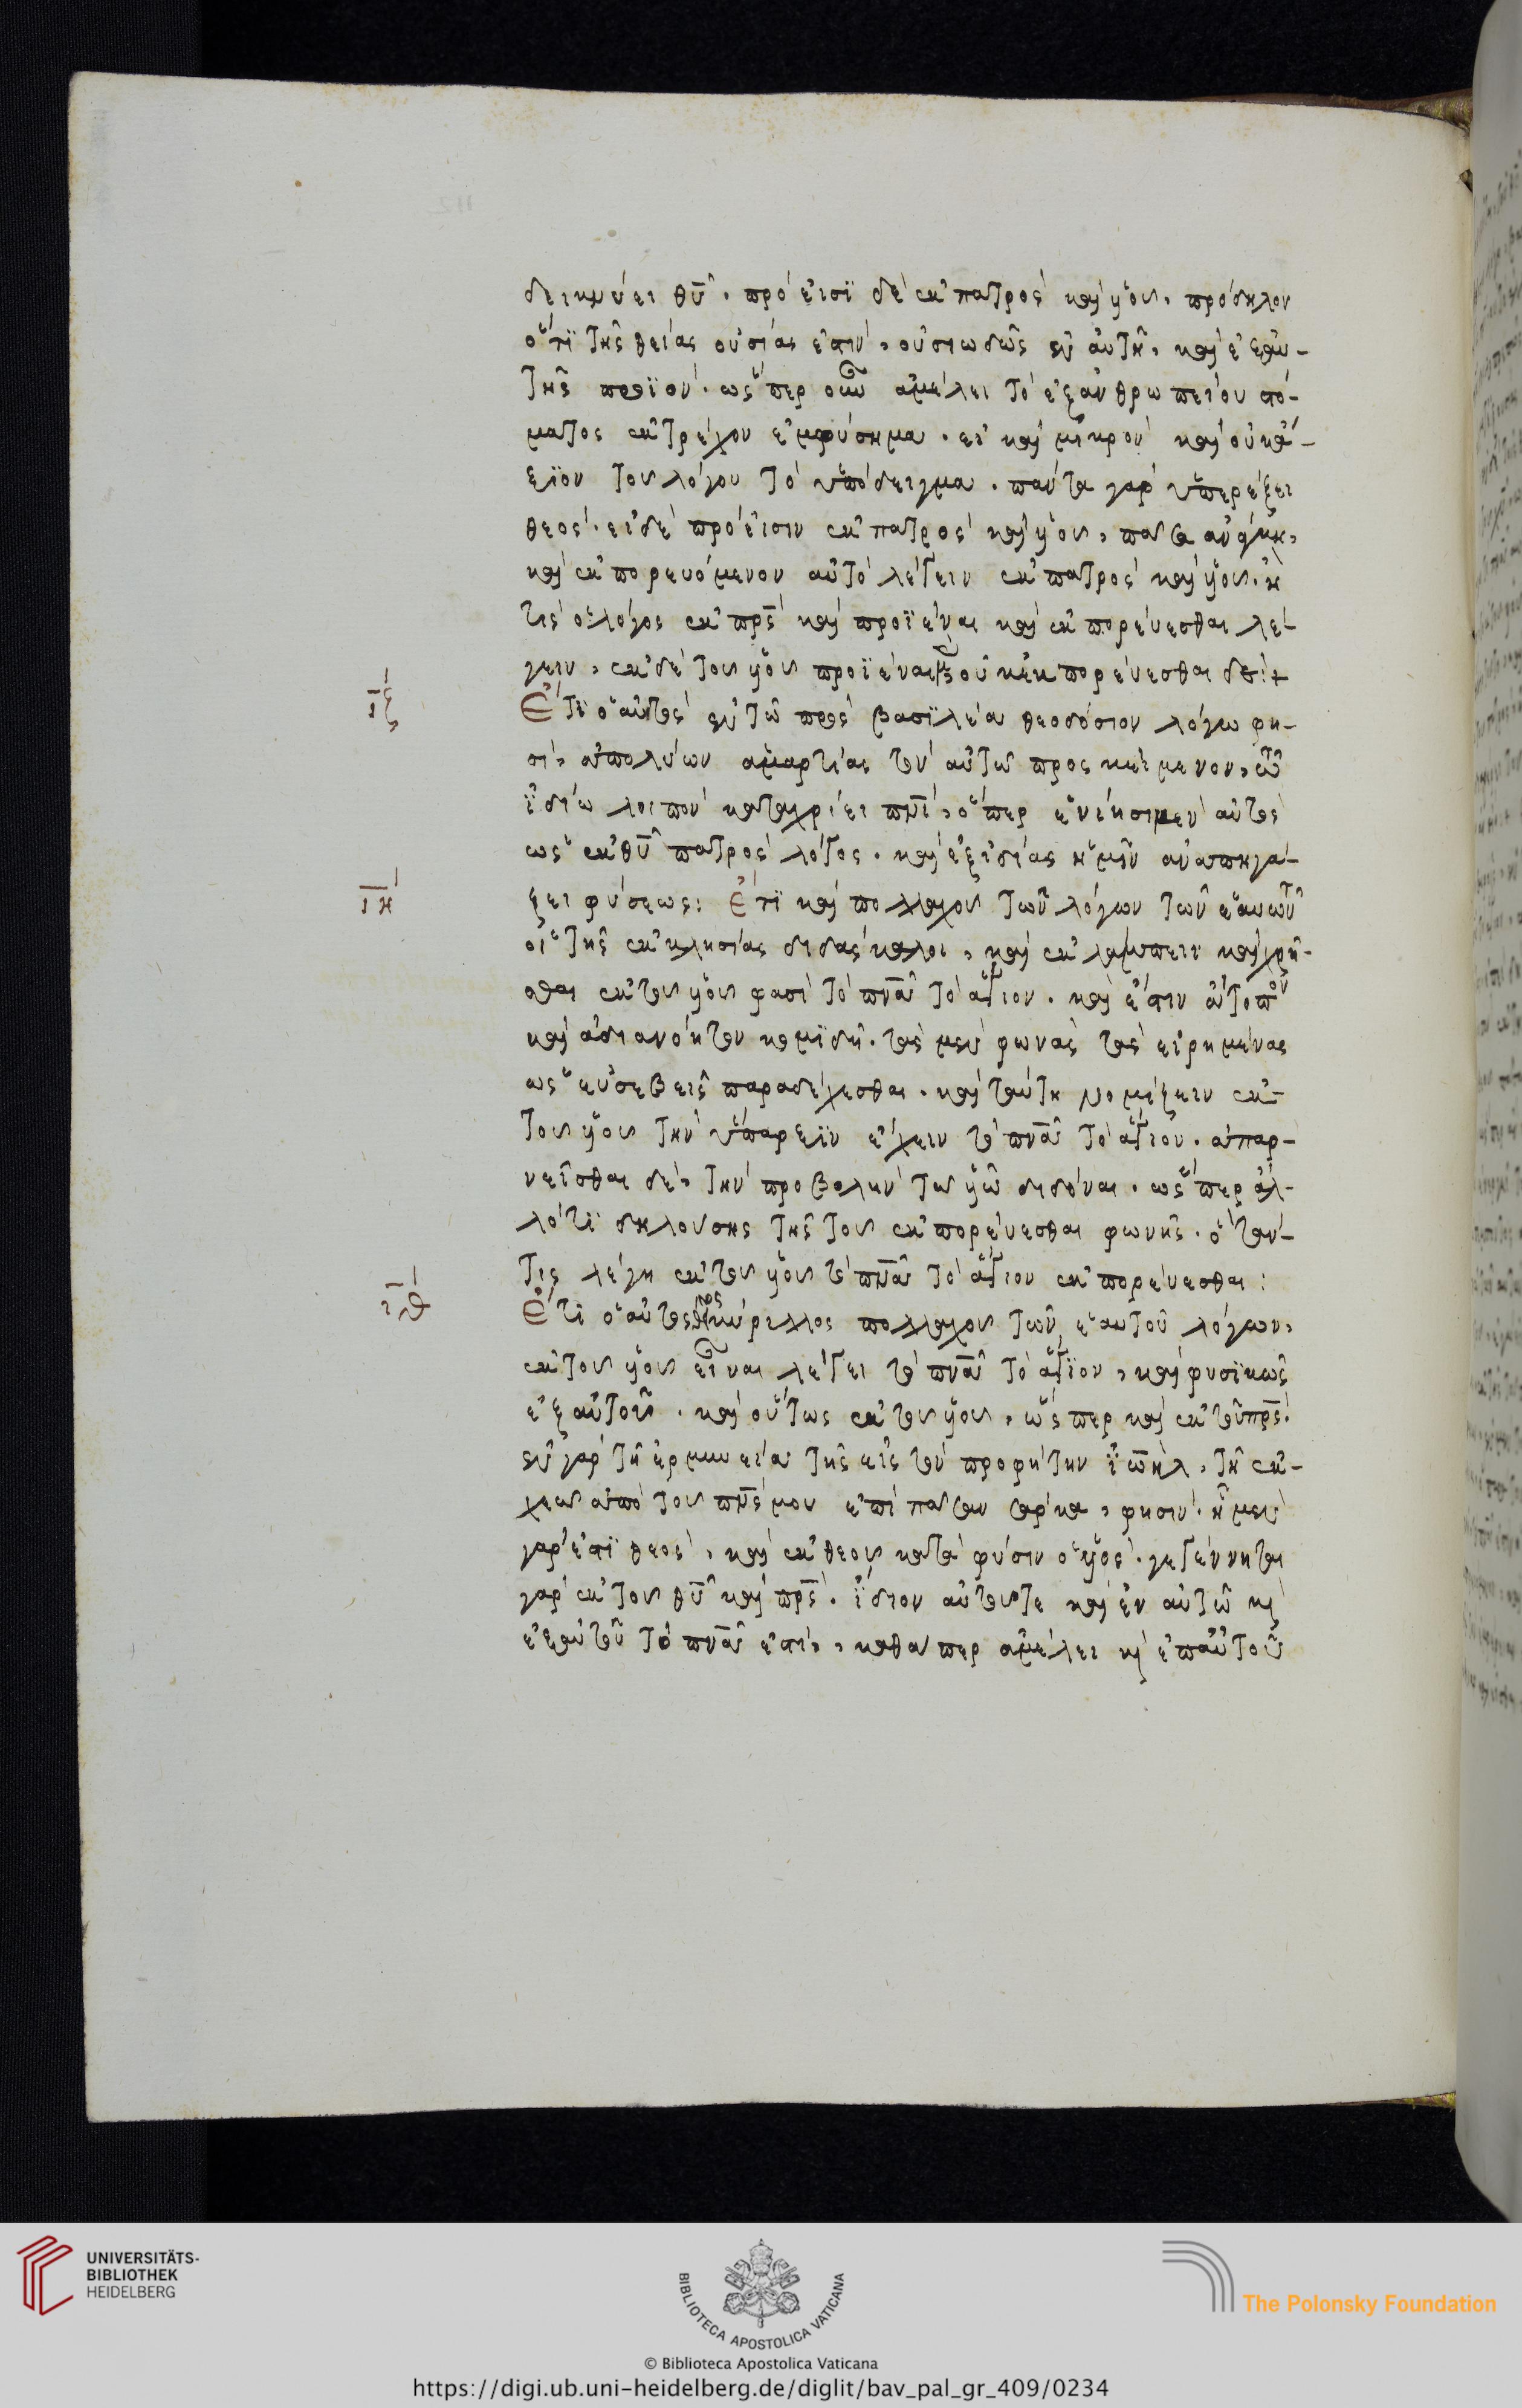 δεικνύει θῡ. πρόεισϊ δὲ ἐκ πατρὸς καὶ ὑοῦ. πρόδηλον
ὅτϊ τῆς θείας οὐσίας ἐστίν, οὐσιωδῶς ἐν αὐτῆ, καὶ ἐξ αὐ-
τῆς προϊόν. ὥσπερ οὖν ἀμέλει τὸ ἐξ ἀνθρωπείου στό-
ματος ἐκτρέχον ἐμφύσημα. εἰ καὶ μικρὸν καὶ οὐκ ἄ-
ξϊον τοῦ λόγου τὸ ὑπόδειγμα. πάντα γὰρ ὑπερέχει
θεός. εἰ δὲ πρόεισιν ἐκ πατρὸς καὶ ὑοῦ, πᾶσα ἀνάγκη,
καὶ ἐκπορευόμενον αὐτὸ λέγειν ἐκ πατρὸς καὶ ὑοῦ. ἢ
τίς ὁ λόγος ἐκ πρς̄ καὶ προϊέναι καὶ ἐκπορεύεσθαι λέ-
γειν, ἐκ δὲ τοῦ ὑοῦ προϊέναι οὐκ ἐκπορεύεσθαι δέ:+
ιζ Ἔτϊ ὁ αὐτὸς ἐν τῶ πρὸς βασϊλέα θεοδόσιον λόγω φη-
σὶ, ἀπολύων ἁμαρτίας τὸν αὐτῶ προσκείμενον, τῶ
ἰδίω λοιπὸν καταχρίει πνῑ, ὅπερ ἐνίησι μὲν αὐτὸς
ὡς ἐκ θῡ πατρὸς λόγος. καὶ ἐξ ἰδίας ἡμῖν ἀναπηγά-
ιη ζει φύσεως: Ἔτϊ καὶ πολλαχοῦ τῶν λόγων τῶν ἑαυτῶν
οἱ τῆς ἐκκλησίας διδάσκαλοι, καὶ ἐκλάμπειν καὶ χεῖ-
σθαι ἐκ τοῦ ὑοῦ φασὶ τὸ πνᾱ τὸ ἅγιον. καὶ ἔστιν ἄτοπον
καὶ ἀδιανόητον κομϊδῆ. τὰς μὲν φωνὰς τὰς εἰρημένας
ὡς εὐσεβεῖς παραδέχεσθαι. καὶ ταύτη νομίζειν ἐκ
τοῦ ὑοῦ τὴν ὕπαρξϊν ἔχειν τὸ πνᾱ τὸ ἅγιον. ἀπαρ-
νεῖσθαι δὲ, τὴν προβολὴν τῶ ὑῶ διδόναι. ὥσπερ ἄλ-
λό τϊ δηλούσης τῆς τοῦ ἐκπορεύεσθαι φωνῆς. ὅταν
τὶς λέγη ἐκ τοῦ ὑοῦ τὸ πνᾱ τὸ ἅγιον ἐκπορεύεσθαι:
ιθ Ἔτϊ ὁ αὐτὸς κύριλλος πολλαχοῦ τῶν ἑαυτοῦ λόγων,
ἐκ τοῦ ὑοῦ εἶναι λέγει τὸ πνᾱ τὸ ἅγϊον, καὶ φυσϊκῶς
ἐξ αὐτοῦ. καὶ οὕτως ἐκ τοῦ ὑοῦ, ὥσπερ καὶ ἐκ τοῦ πρς̄.
ἐν γὰρ τῆ ἑρμηνεία τῆς εἰς τὸν προφήτην ἰωὴλ, τῆ ἐκ-
χεῶ ἀπὸ τοῦ πνς̄ μου ἐπὶ πᾶσαν σάρκα, φησίν. ἦ μὲν
γάρ ἐστϊ θεὸς, καὶ ἐκ θεοῦ κατὰ φύσιν ὁ ὑός. γεγέννηται
γὰρ ἐκ τοῦ θῡ καὶ πρς̄. ἴδιον αὐτοῦ τε καὶ ἐν αὐτῶ καὶ
ἐξ αὐτοῦ τὸ πνᾱ ἐστὶ, καθάπερ ἀμέλει καὶ ἐπ' αὐτοῦ
UNIVERSITÄTS-
BIBLIOTHEK
HEIDELBERG
BIBLIOTECA APOSTOLICA VATICANA
The Polonsky Foundation
© Biblioteca Apostolica Vaticana
https://digi.ub.uni-heidelberg.de/diglit/bav_pal_gr_409/0234